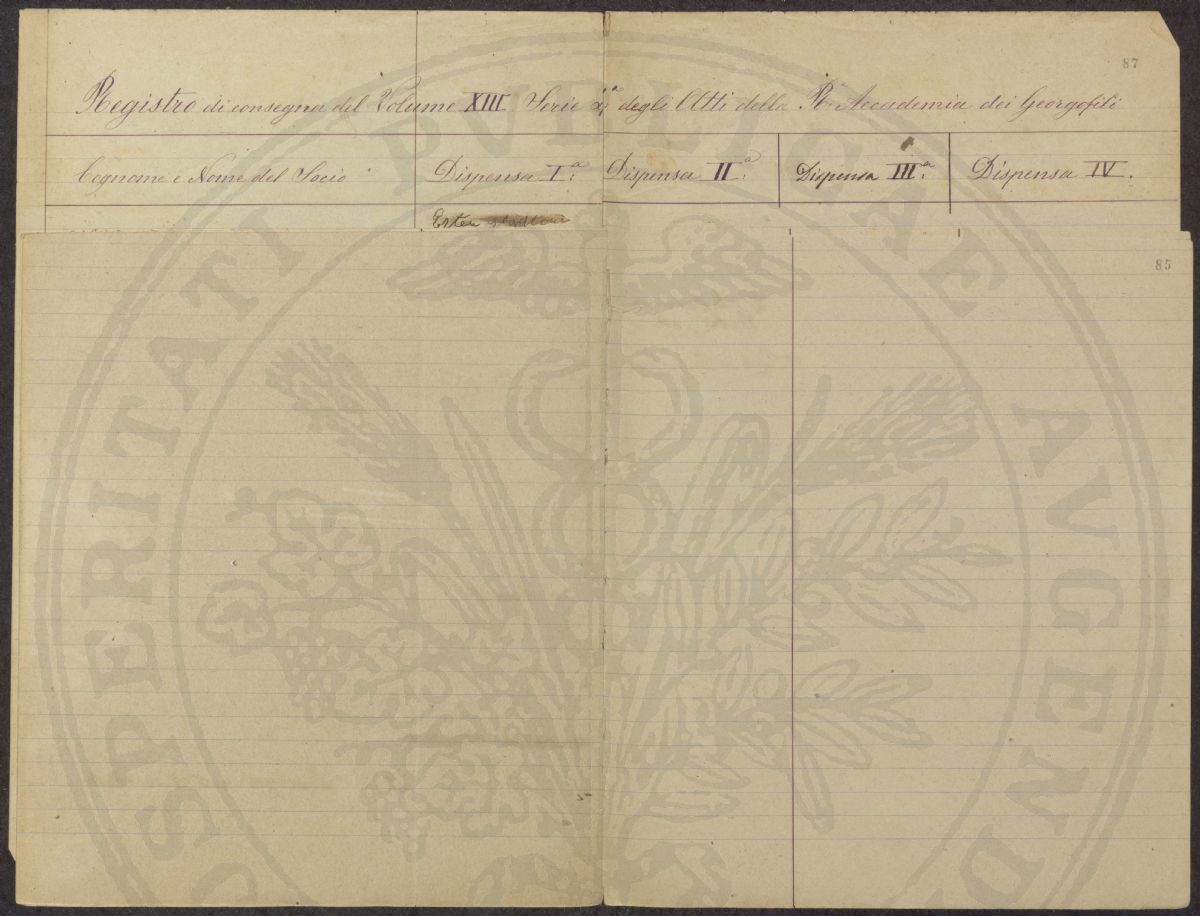 87
Registro di consegna del Volume XIII Serie 4ª degli Atti della Rª Accademia dei Georgofili
Cognome e Nome del Socio Dispensa Iª: Dispensa IIª: Dispensa IIIª: Dispensa IV.
85
PROSPERITATI PVBLICAE AVGENDAE